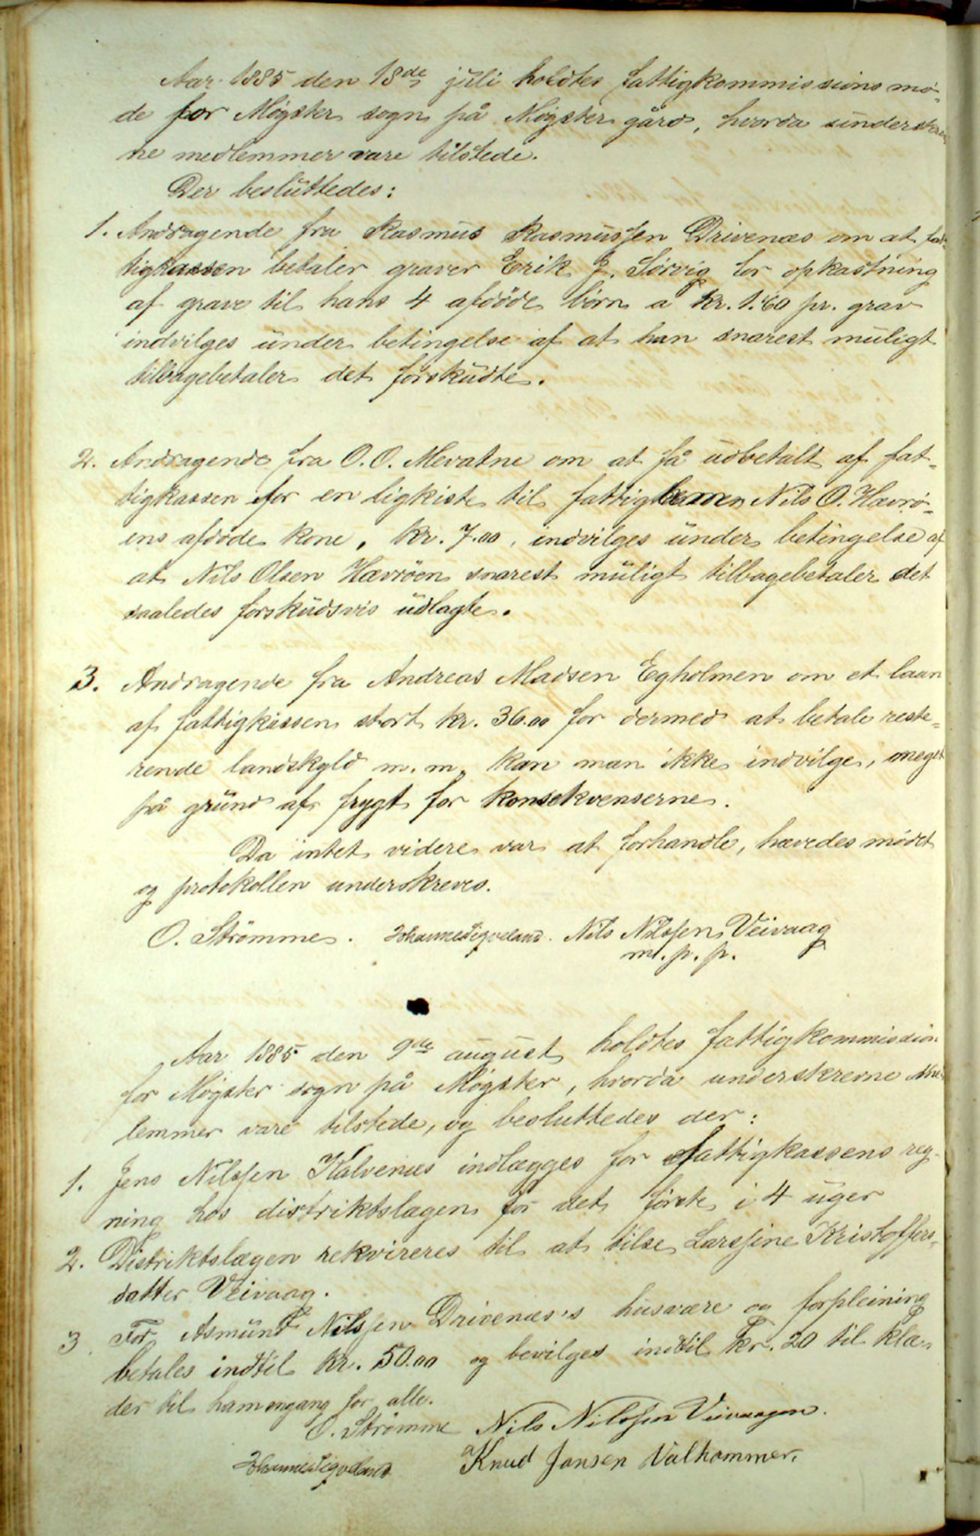 Aar 1885 den 18de juli holdtes fattigkommissions mø-
de for Møgster sogn på Møgster gård, hvorda underskrev-
ne medlemmer vare tilstede.
Der besluttedes:
1. Andragende fra Rasmus Rasmussen Drivenæs om at fat-
tigkassen betaler graver Erik J. Sørvig for opkastning
af grave til hans 4 afdöde börn a kr. 1.60 pr. grav
indvilges under betingelse af at han snarest muligt
tilbagebetaler det forskudte.
2. Andragende fra O.O. Mevatne om at få udbetalt af fat-
tigkassen for en ligkiste til fattiglemmen Nils O. Hævrö-
ens afdöde kone, kr. 7.00, indvilges under betingelse af
at Nils Olsen Hævröen snarest muligt tilbagebetaler det
saaledes forskudsvis udlagte.
3. Andragende fra Andreas Madsen Egholmen om et laan
af fattigkassen stort kr. 36.00 for dermed at betale reste-
rende landskyld m. m. kan man ikke indvilge, meget
på grund af frygt for konsekvenserne.
Da intet videre var at forhandle, hævedes mödet
og protokollen underskreves.
O. Strömme. Johannes Tegveland. Nils Nilssen Veivaag
m. p. p.
Aar 1885 den 9de august holdtes fattigkommission
for Møgster sogn på Møgster, hvorda underskrevne Med-
lemmer vare tilstede, og besluttedes der:
1. Jens Nilssen Kalvenæs indlægges for fattigkassens reg-
ning hos distriktslægen for det förste i 4 uger
2. Distriktslægen rekvireres til at tilse Larssine Kristoffers-
datter Veivaag.
3 For Asmund Nilssen Drivenæs's husvære og forpleining
betales indtil kr. 50.00 og bevilges indtil kr. 20 til klæ-
der til ham engang for alle.
O. Strömme Nils Nilssen Veivaagen.
Johannes Tegveland Knud Jansen Valhammer.